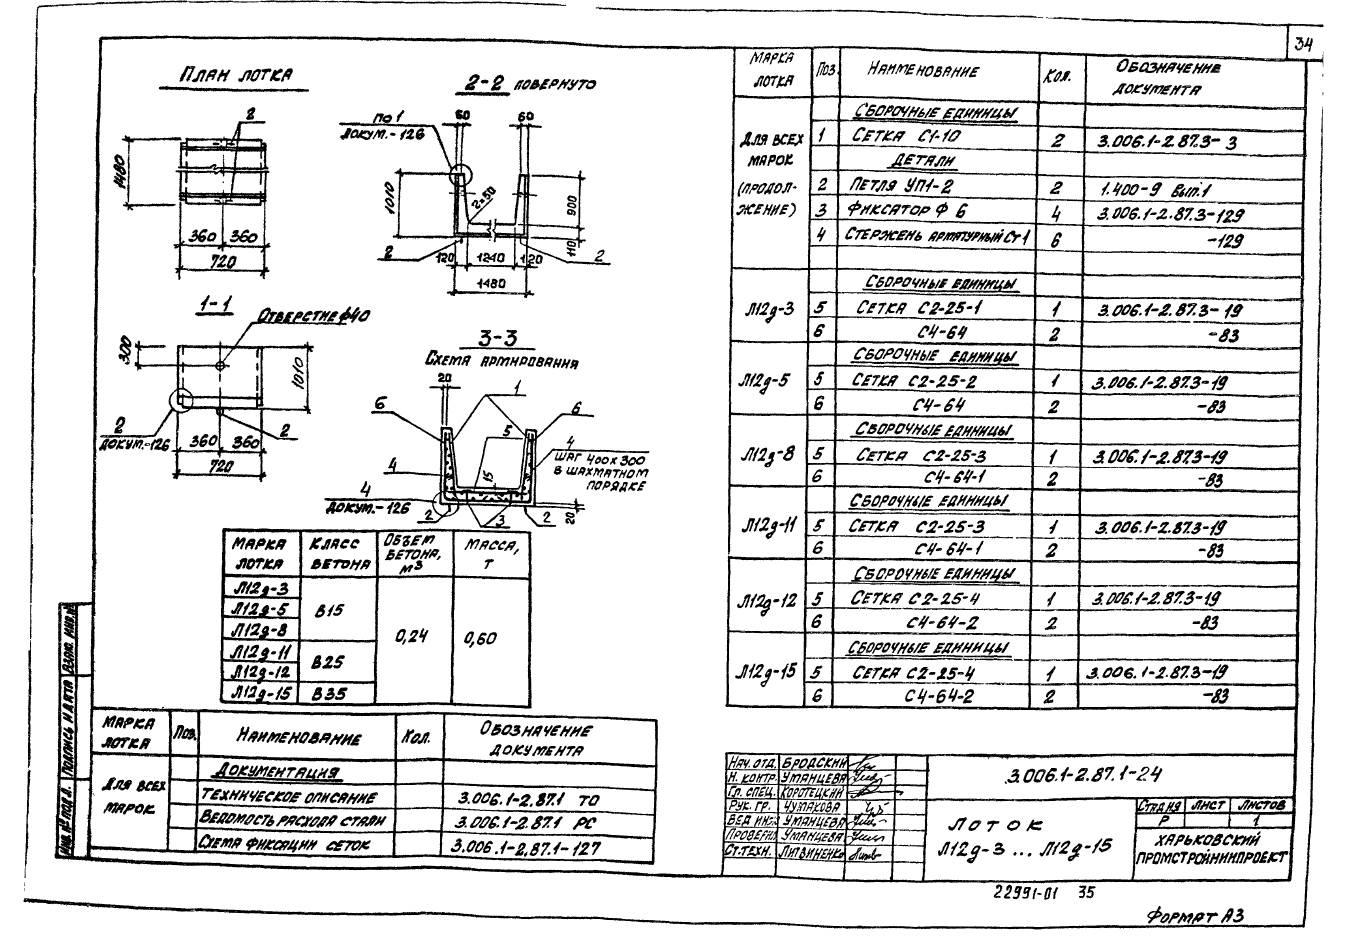 34
План лотка
2
1480
360 360
720
2-2 повернуто
по 1
докум.-126
60 60
1010
2×50
900
110
2 2
120 1240 120
1480
1-1
Отверстие ф40
300
1010
2
докум.-126
2
360 360
720
3-3
Схема армирования
20
1
6 5 6
4
шаг 400×300
в шахматном
порядке
4
15
4
докум.-126
2 3 2
20
Марка лотка Класс бетона Объем бетона, м3 Масса, т
Л12д-3
Л12д-5 В15
Л12д-8
0,24 0,60
Л12д-11 В25
Л12д-12
Л12д-15 В35
Марка лотка Поз. Наименование Кол. Обозначение документа
Для всех марок
Документация
Техническое описание 3.006.1-2.87.1 ТО
Ведомость расхода стали 3.006.1-2.87.1 РС
Схема фиксации сеток 3.006.1-2.87.1-127
Инв.№ подл. Подпись и дата Взам. инв.№
Марка лотка Поз. Наименование Кол. Обозначение документа
Для всех марок (продолжение)
Сборочные единицы
1 Сетка С1-10 2 3.006.1-2.87.3-3
Детали
2 Петля УП1-2 2 1.400-9 Вып.1
3 Фиксатор Ф 6 4 3.006.1-2.87.3-129
4 Стержень арматурный Ст1 6 -129
Сборочные единицы
Л12д-3 5 Сетка С2-25-1 1 3.006.1-2.87.3-19
6 С4-64 2 -83
Сборочные единицы
Л12д-5 5 Сетка С2-25-2 1 3.006.1-2.87.3-19
6 С4-64 2 -83
Сборочные единицы
Л12д-8 5 Сетка С2-25-3 1 3.006.1-2.87.3-19
6 С4-64-1 2 -83
Сборочные единицы
Л12д-11 5 Сетка С2-25-3 1 3.006.1-2.87.3-19
6 С4-64-1 2 -83
Сборочные единицы
Л12д-12 5 Сетка С2-25-4 1 3.006.1-2.87.3-19
6 С4-64-2 2 -83
Сборочные единицы
Л12д-15 5 Сетка С2-25-4 1 3.006.1-2.87.3-19
6 С4-64-2 2 -83
Нач. отд. Бродский
Н. контр. Уманцева
Гл. спец. Коротецкий
Рук. гр. Чумакова
Вед. инж. Уманцева
Проверил Уманцева
Ст. техн. Литвиненко
3.006.1-2.87.1-24
Лоток
Л12д-3 ... Л12д-15
Стадия Лист Листов
Р 1
Харьковский
Промстройниипроект
22991-01 35
Формат А3